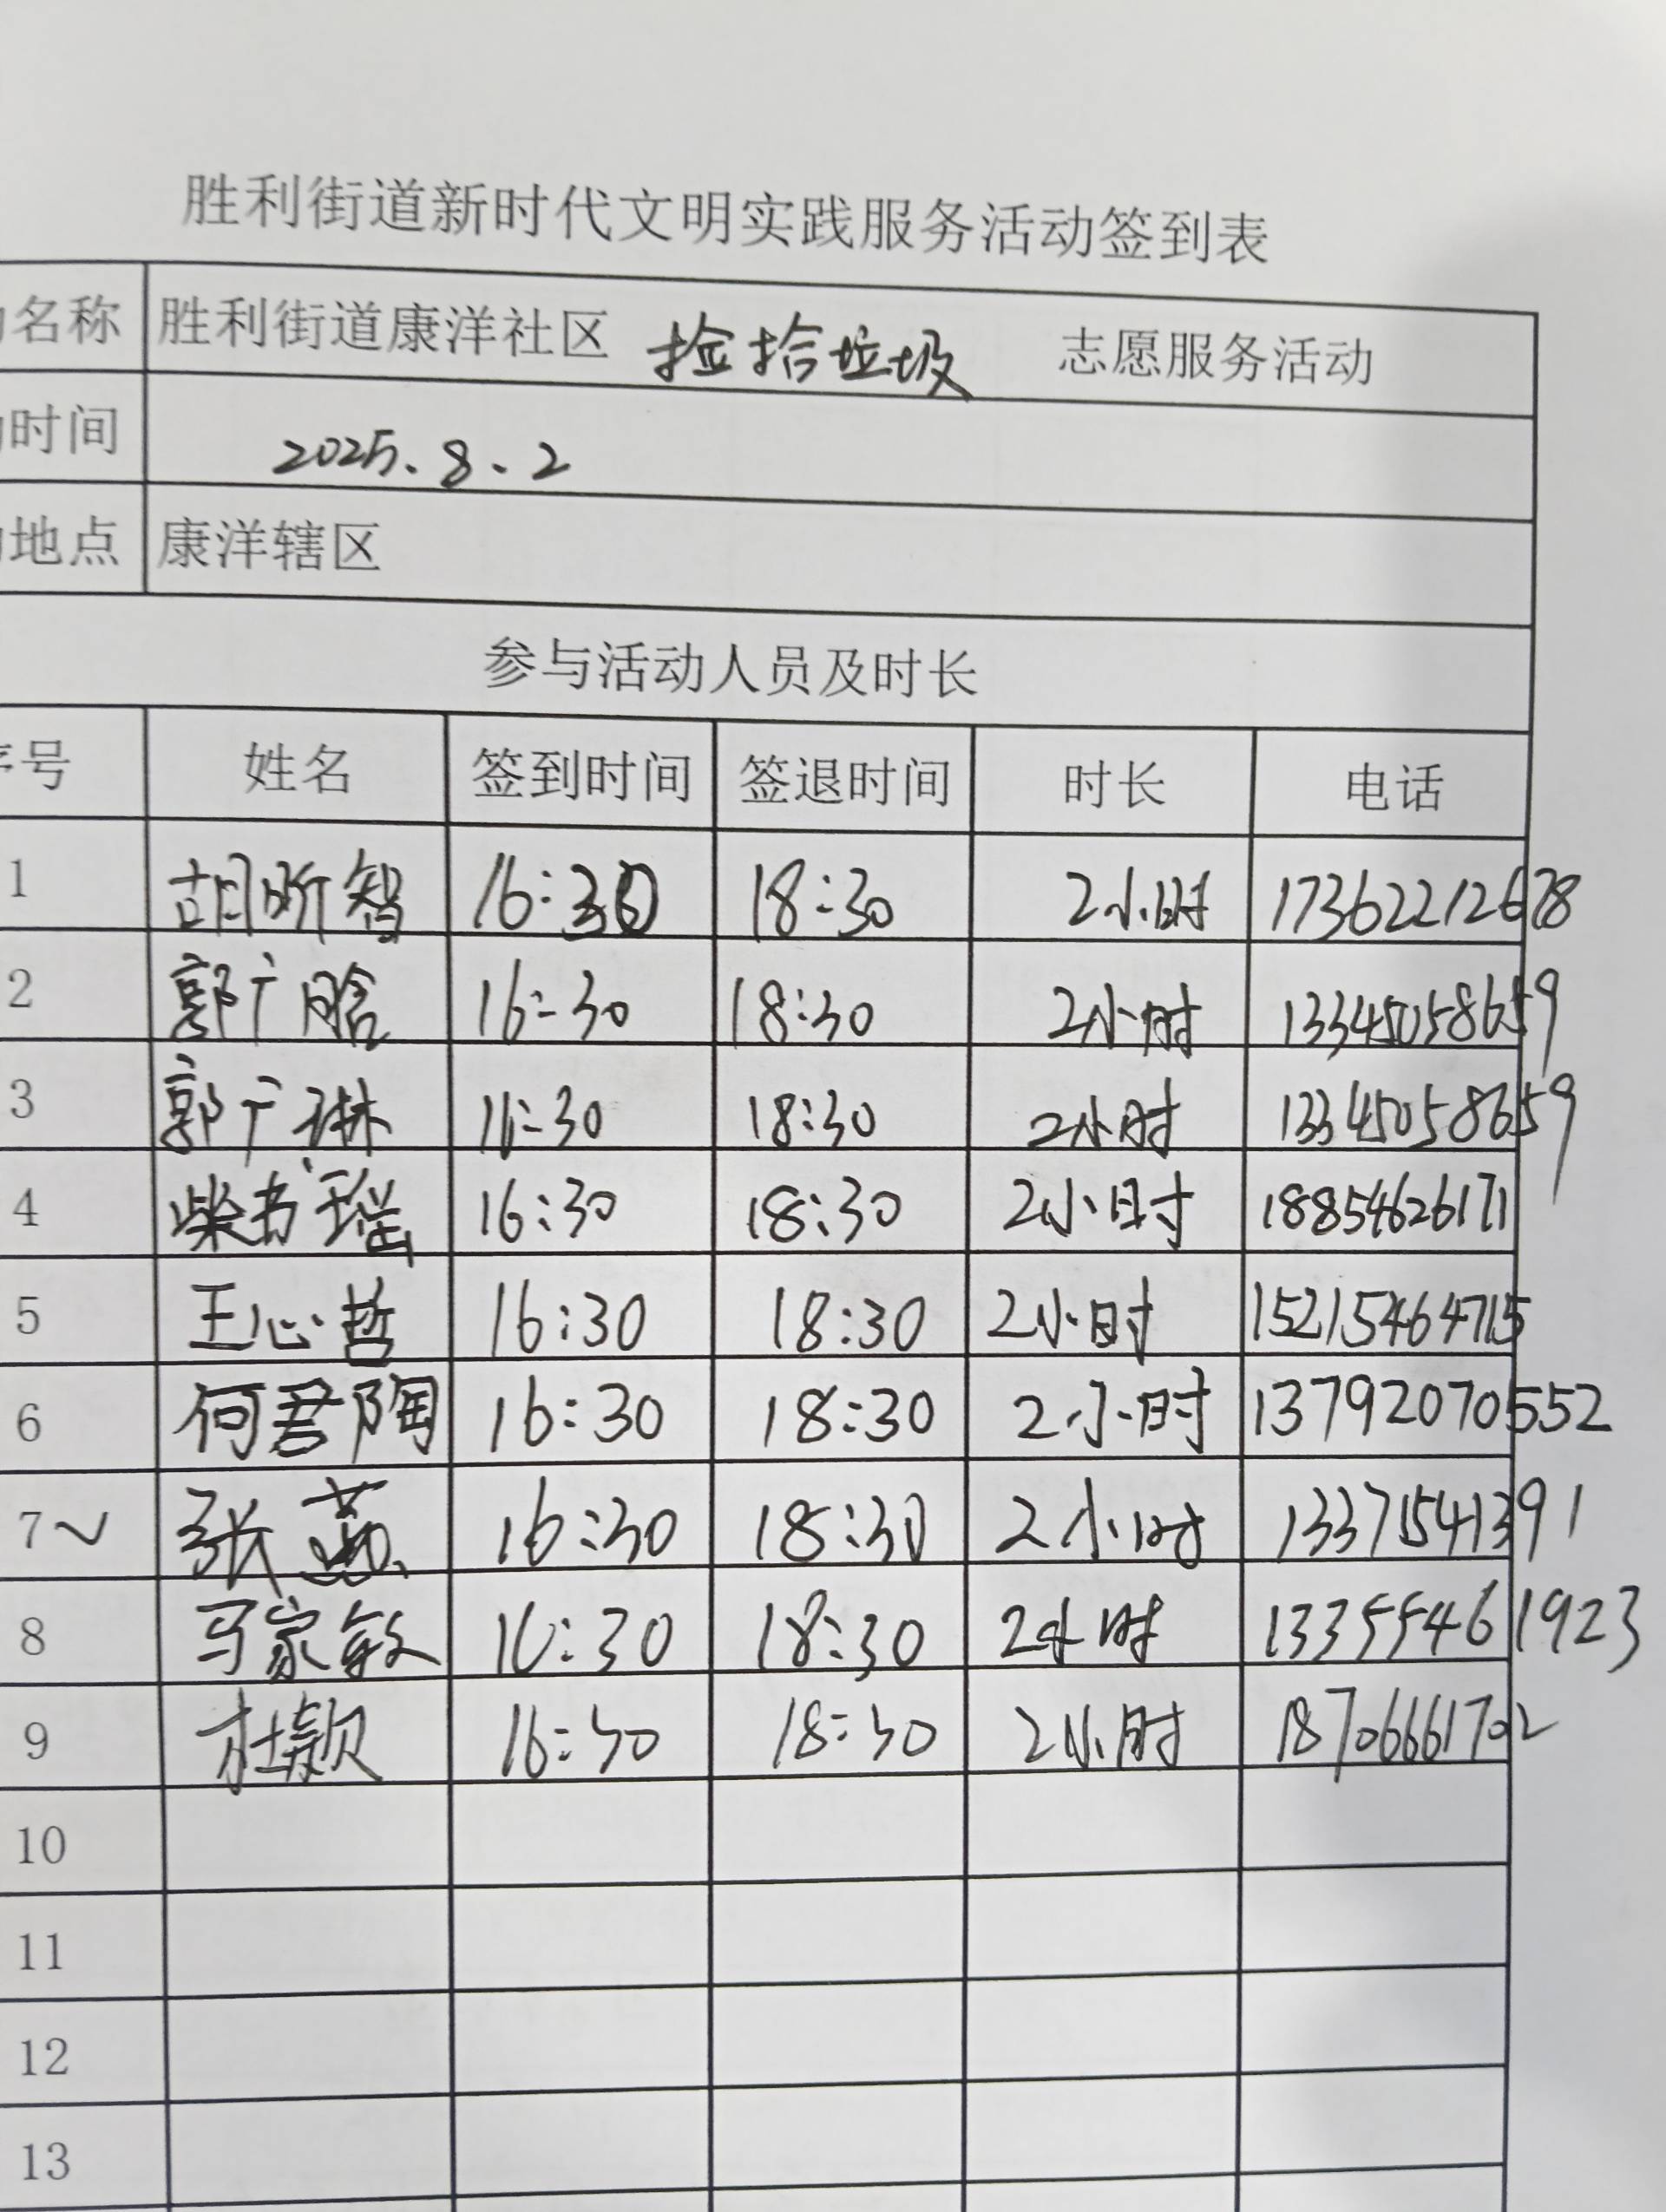 胜利街道新时代文明实践服务活动签到表
名称 胜利街道康洋社区 捡拾垃圾 志愿服务活动
时间 2025.8.2
地点 康洋辖区
参与活动人员及时长
序号 姓名 签到时间 签退时间 时长 电话
1 胡昕智 16:30 18:30 2小时 17362212678
2 郭广晗 16:30 18:30 2小时 13345058659
3 郭广琳 16:30 18:30 2小时 13345058659
4 柴书瑶 16:30 18:30 2小时 18854626171
5 王心哲 16:30 18:30 2小时 15215464715
6 何君陶 16:30 18:30 2小时 13792070552
7 张 16:30 18:30 2小时 13371541391
8 马家敏 16:30 18:30 2小时 13355461923
9 杜颖 16:30 18:30 2小时 18706661702
10
11
12
13